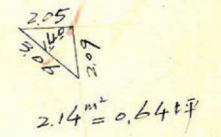 2.05
1.40
3.06
2.09
2.14m²=0.64坪